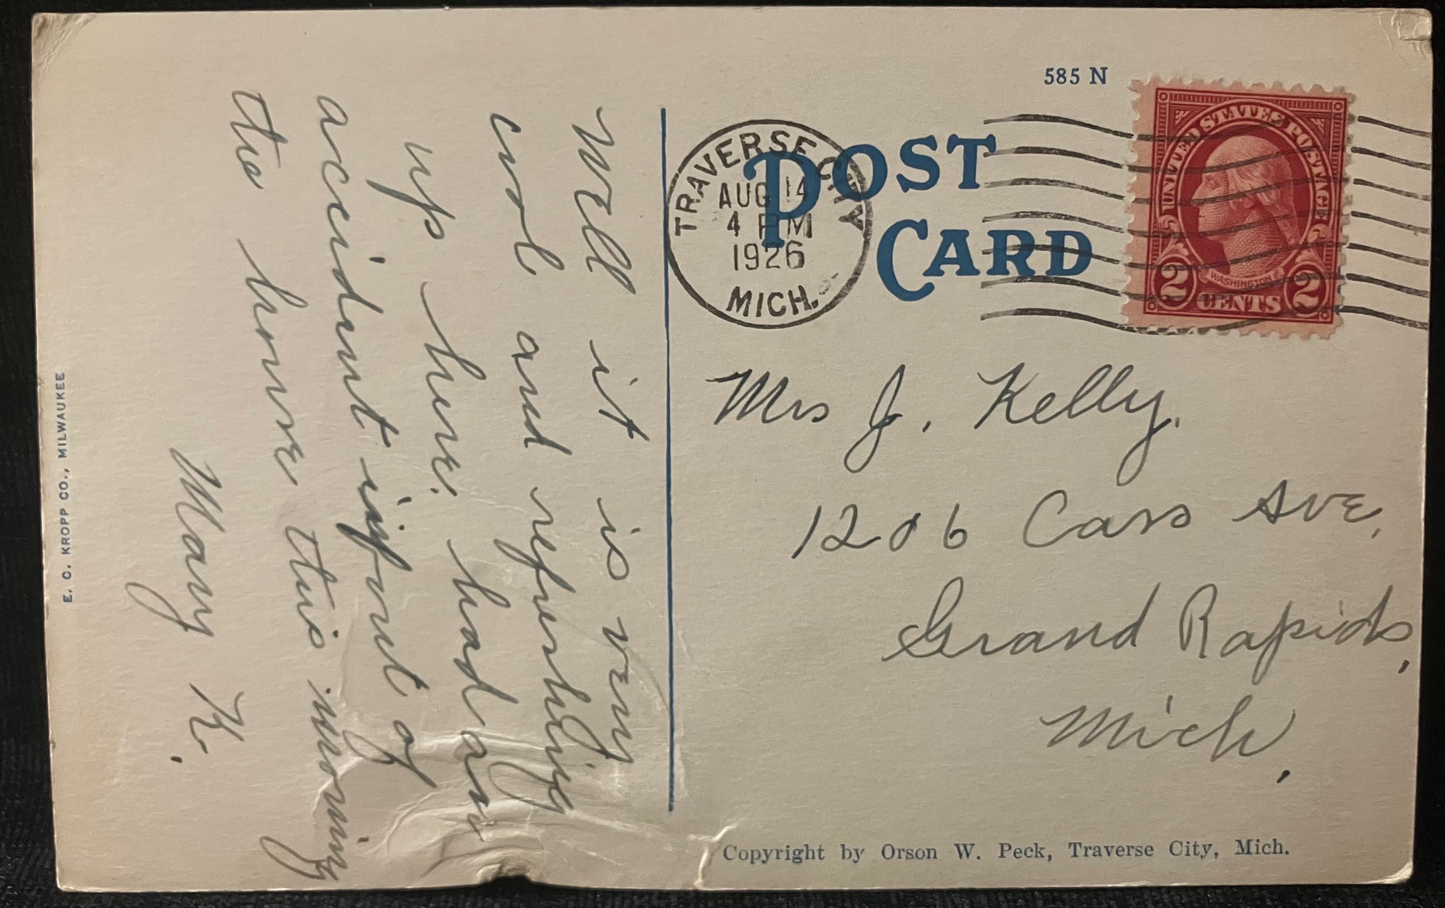 585 N
POST
CARD
TRAVERSE CITY
AUG 14
4 PM
1926
MICH.
UNITED STATES POSTAGE
WASHINGTON
2 CENTS 2
Mrs J. Kelly.
1206 Cass Ave,
Grand Rapids,
Mich,
Well it is very
cool and refreshing
up here. had an
accident infront of
the house this morning
Mary K.
E. C. KROPP CO., MILWAUKEE
Copyright by Orson W. Peck, Traverse City, Mich.